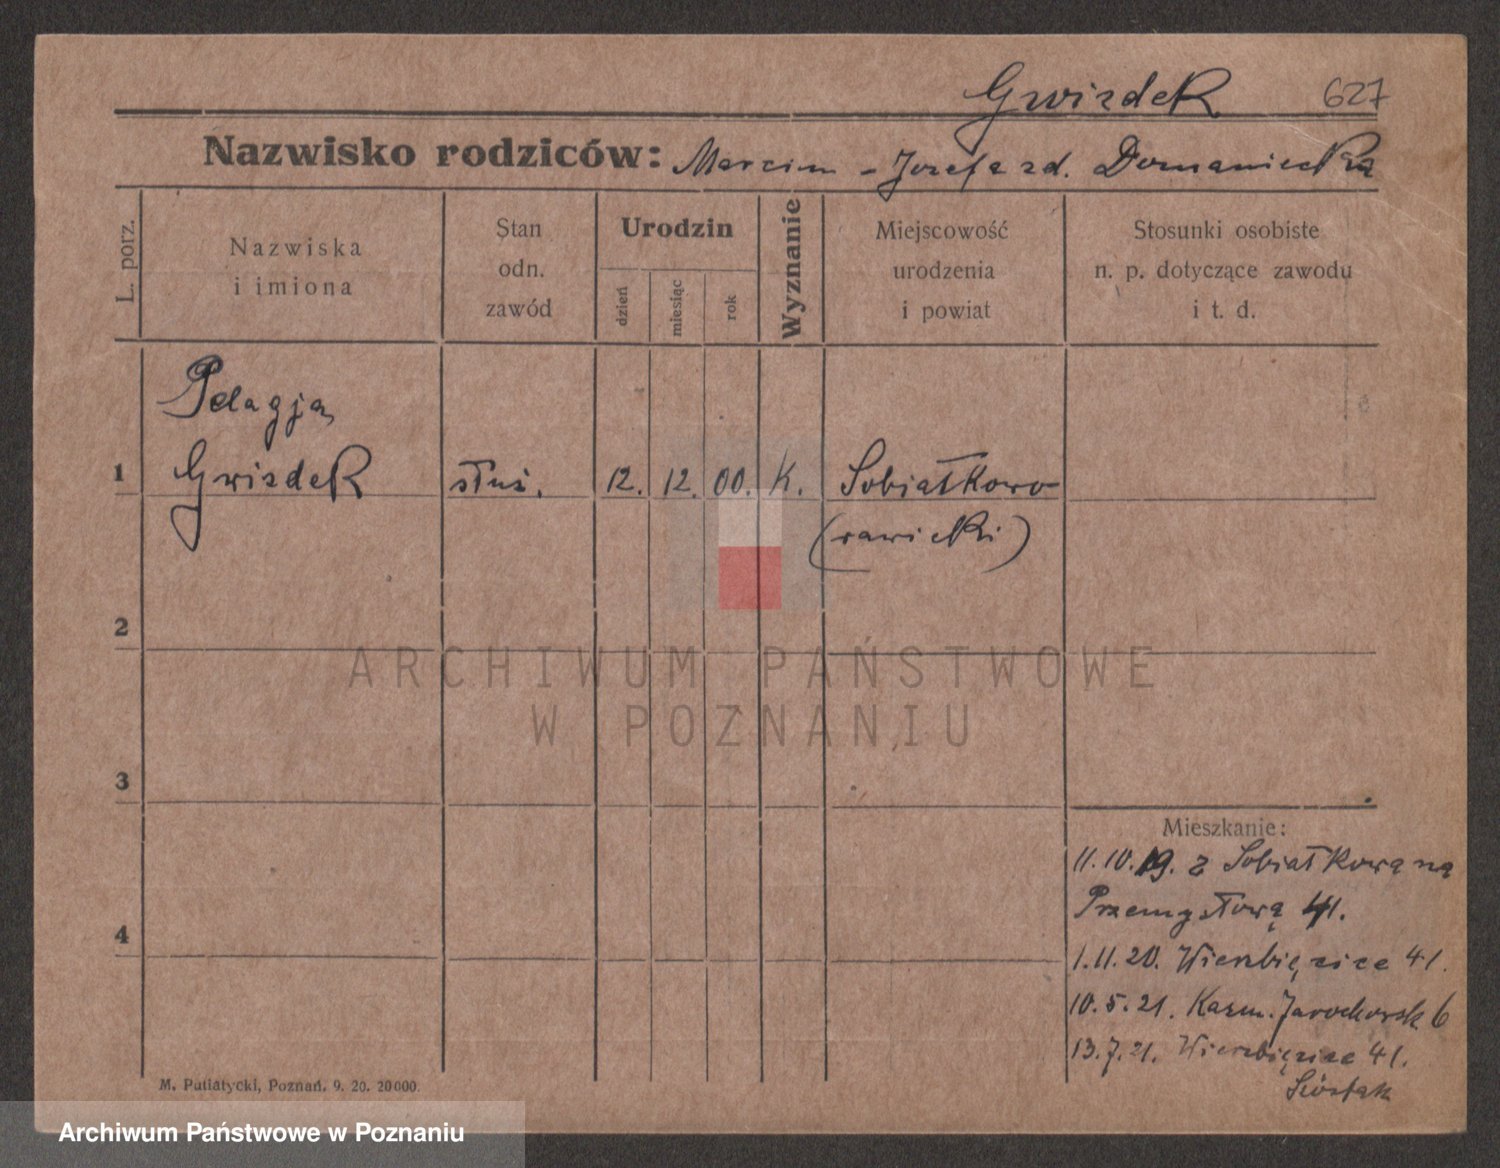 Gwizdek 627
Nazwisko rodziców: Marcin - Jozefa zd. Domaniecka
L. porz.
Nazwiska
i imiona
Stan
odn.
zawód
Urodzin
dzień
miesiąc
rok
Wyznanie
Miejscowość
urodzenia
i powiat
Stosunki osobiste
n. p. dotyczące zawodu
i t. d.
Pelagja
1 Gwizdek służ. 12. 12. 00. K. Sobiałkowo
(rawicki)
2
ARCHIWUM PAŃSTWOWE
W POZNANIU
3
4
Mieszkanie:
11.10.19. z Sobiałkowa na
Przemysłową 41.
1.11.20. Wierzbięcice 41.
10.5.21. Kazm. Jarochowsk 6
13.7.21. Wierzbięcice 41.
M. Putiatycki, Poznań. 9. 20. 20000.
Archiwum Państwowe w Poznaniu